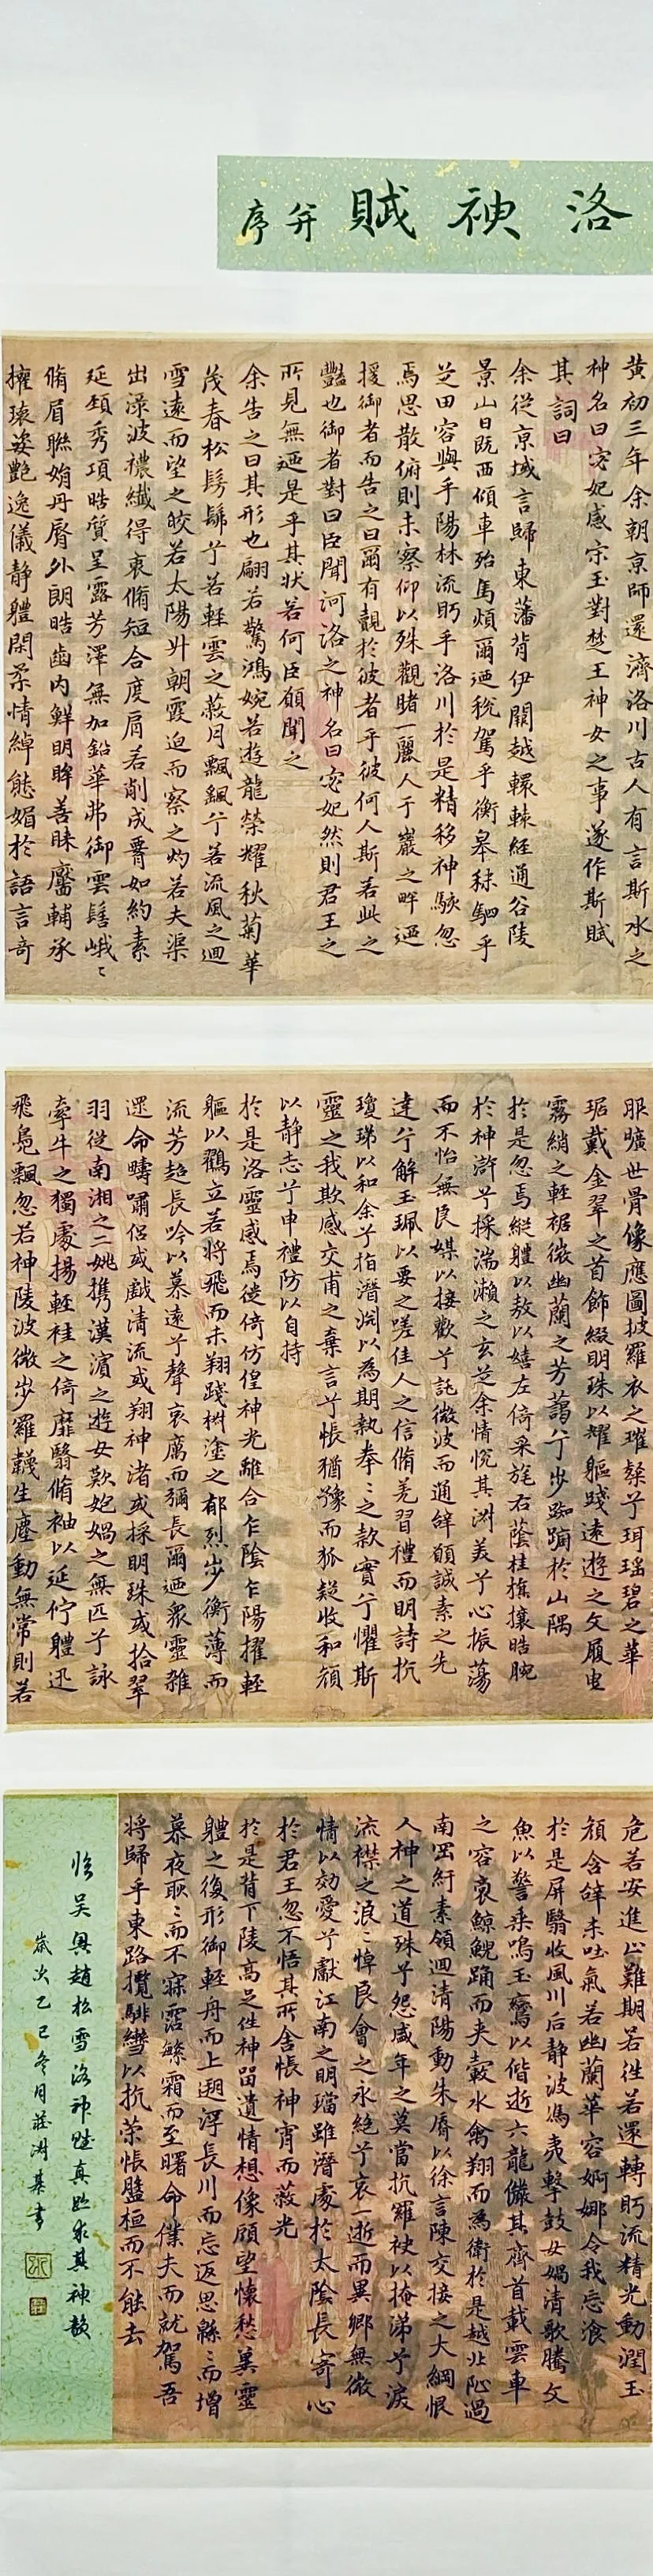 洛神賦并序
黄初三年余朝京師還濟洛川古人有言斯水之
神名曰宓妃感宋玉對楚王神女之事遂作斯賦
其詞曰
余從京域言歸東藩背伊闕越轘轅經通谷陵
景山日既西傾車殆馬煩爾迺税駕乎衡皋秣駟乎
芝田容與乎陽林流眄乎洛川於是精移神駭忽
焉思散俯則未察仰以殊觀睹一麗人于巖之畔迺
援御者而告之曰爾有覿於彼者乎彼何人斯若此之
豔也御者對曰臣聞河洛之神名曰宓妃然則君王之
所見無迺是乎其状若何臣願聞之
余告之曰其形也翩若驚鴻婉若遊龍榮耀秋菊華
茂春松髣髴兮若輕雲之蔽月飄飖兮若流風之迴
雪遠而望之皎若太陽升朝霞迫而察之灼若夫渠
出淥波襛纖得衷脩短合度肩若削成腰如約素
延頚秀項皓質呈露芳澤無加鉛華弗御雲髻峨〻
脩眉聯娟丹脣外朗皓齒内鮮明眸善睐靨輔承
權瓌姿艷逸儀静體閑柔情綽態媚於語言奇
服曠世骨像應圖披羅衣之璀粲兮珥瑶碧之華
琚戴金翠之首飾綴明珠以耀軀踐遠遊之文履曳
霧綃之輕裾微幽蘭之芳藹兮步踟蹰於山隅
於是忽焉縱體以敖以嬉左倚采旄右蔭桂旗攘皓腕
於神滸兮採湍瀨之玄芝余情悅其淑美兮心振蕩
而不怡無良媒以接歡兮託微波而通辝願誠素之先
達兮解玉珮以要之嗟佳人之信脩羌習禮而明詩抗
瓊珶以和余兮指潛淵以為期執拳〻之款實兮懼斯
靈之我欺感交甫之棄言兮悵猶豫而狐疑收和顔
以静志兮申禮防以自持
於是洛靈感焉徙倚仿偟神光離合乍陰乍陽擢輕
軀以鶴立若將飛而未翔踐椒塗之郁烈步衡薄而
流芳超長吟以慕遠兮聲哀厲而彌長爾迺衆靈雜
遝命疇嘯侣或戲清流或翔神渚或採明珠或拾翠
羽從南湘之二姚携漢濱之遊女歎匏媧之無匹兮詠
牽牛之獨處揚輕袿之倚靡翳脩袖以延佇體迅
飛鳧飄忽若神陵波微步羅韈生塵動無常則若
危若安進止難期若往若還轉眄流精光動潤玉
顔含辝未吐氣若幽蘭華容婀娜令我忘飡
於是屏翳收風川后静波馮夷擊鼓女媧清歌騰文
魚以警乘鳴玉鸞以偕逝六龍儼其齊首載雲車
之容裔鯨鯢踊而夹轂水禽翔而為衛於是越北沚過
南岡紆素領迴清陽動朱脣以徐言陳交接之大綱恨
人神之道殊兮怨盛年之莫當抗羅袂以掩涕兮淚
流襟之浪〻悼良會之永絶兮哀一逝而異鄉無微
情以効愛兮獻江南之明璫雖潛處於太陰長寄心
於君王忽不悟其所舍悵神宵而蔽光
於是背下陵高足往神留遺情想像顧望懷愁冀靈
體之復形御輕舟而上遡浮長川而忘返思緜〻而增
慕夜耿〻而不寐霑繁霜而至曙命僕夫而就駕吾
将歸乎東路攬騑轡以抗策悵盤桓而不能去
临吴興趙松雪洛神賦真跡求其神韻
歲次乙巳冬月莊淵基書